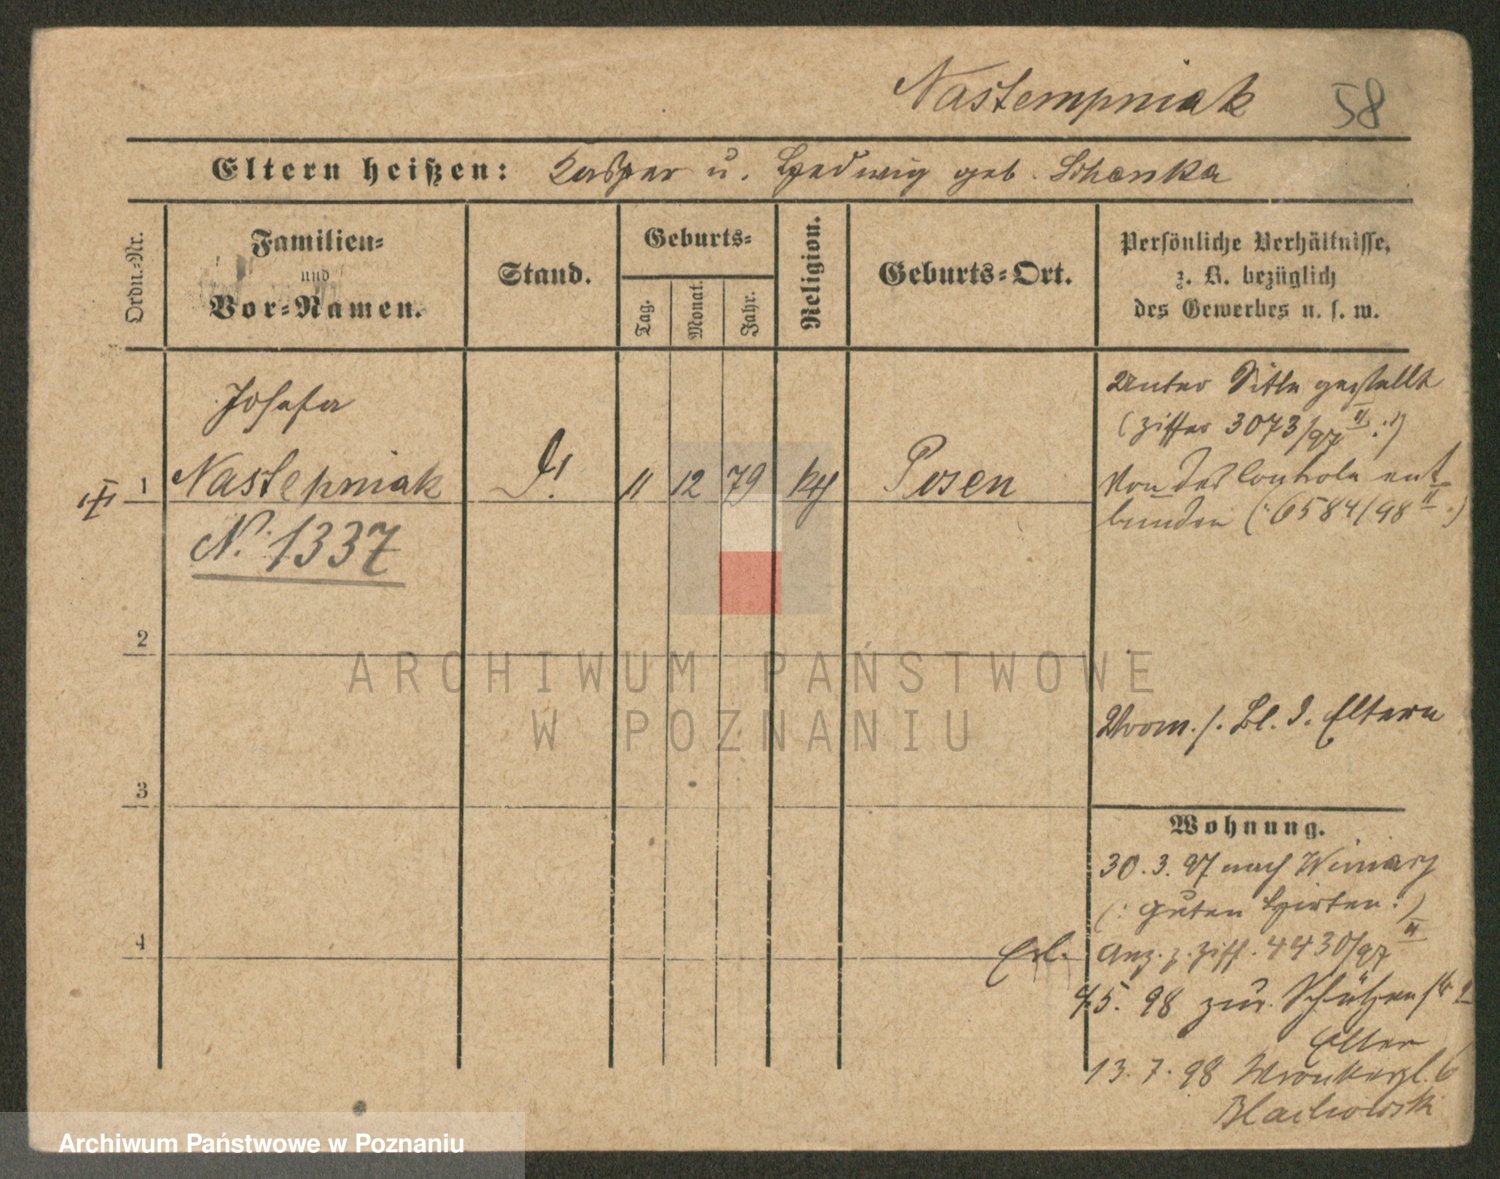 Nastempniak 58
Eltern heißen: Kaspar u. Hedwig geb. Schonka
Ordn.-Nr.
Familien-
und
Vor-Namen.
Stand.
Geburts-
Tag.
Monat.
Jahr.
Religion.
Geburts-Ort.
Persönliche Verhältnisse,
z. B. bezüglich
des Gewerbes u. s. w.
Josefa
1 Nastepniak 11 12 79 kth Posen
N. 1337
Unter Sitte gestellt
(Ziffer 3073/97 II :)
Von der Controle ent
bunden (: 6584/98 II :)
2
3
4
Eltern
Wohnung.
30.3.97 nach Winiary
(: Guten Hirten :)
Erl. Anz. z. Ziff. 4430/97 II
4.5. 98 zur. Schützenstr 2
Eltern
13.7.98 Wronkerpl. 6
Blachowski
ARCHIWUM PAŃSTWOWE
W POZNANIU
Archiwum Państwowe w Poznaniu